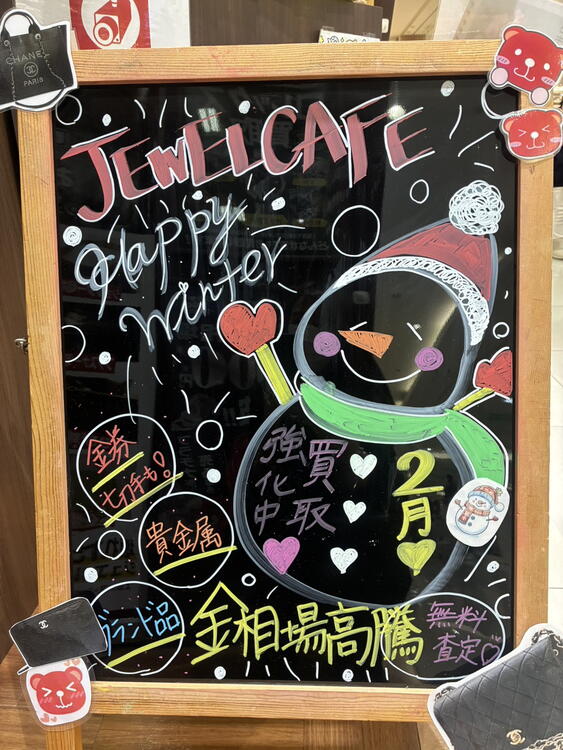 CHANEL
PARIS
JEWELCAFE
Happy
Winter
買取
強化中
2月
金券
切手も!
貴金属
ブランド品
金相場高騰
無料
査定♡